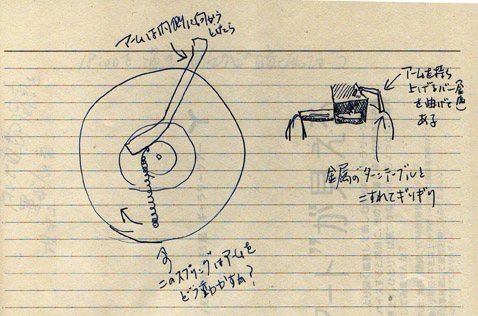 アームは内側に向かう
としたら
アームを持ち
上げるバー(金色)
を曲げて
ある
金属のターンテーブルと
こすれてギリギリ
このスプリングはアームを
どう動かすか?